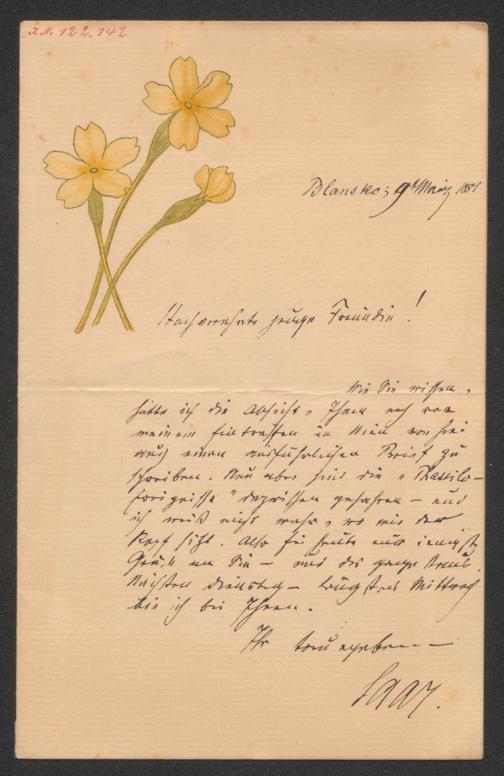 I.N. 122.142
Blansko, 9t März 1881
Hochverehrte junge Freundin!
Wie Sie wissen,
hatte ich die Absicht, Ihnen noch vor
meinem Eintreffen in Wien von hier
aus einen ausführlichen Brief zu
schreiben. Nun aber sind die „Thassilo-
Ereignisse" dazwischen gefahren – und
ich weiß nicht mehr, wo mir der
Kopf sitzt. Also für heute nur innigste
Grüße an Sie – und die ganze
Nächsten Dienstag – längstens Mittwoch
bin ich bei Ihnen.
Ihr treu ergebener
Saar.